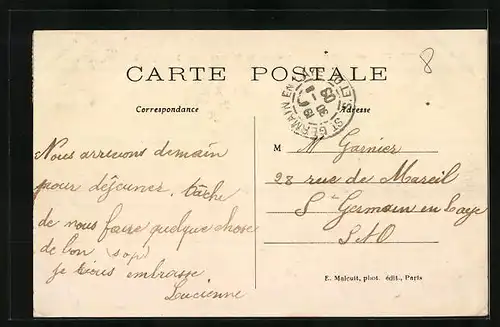 8
CARTE POSTALE
Correspondance
Adresse
ST GERMAIN EN
Nous arrivons demain
pour déjeuner, tâche
de nous faire quelque chose
de bon
je vous embrasse
Lucienne
M M Garnier
28 rue de Mareil
St Germain en Laye
S&O
E. Malcuit, phot. édit., Paris